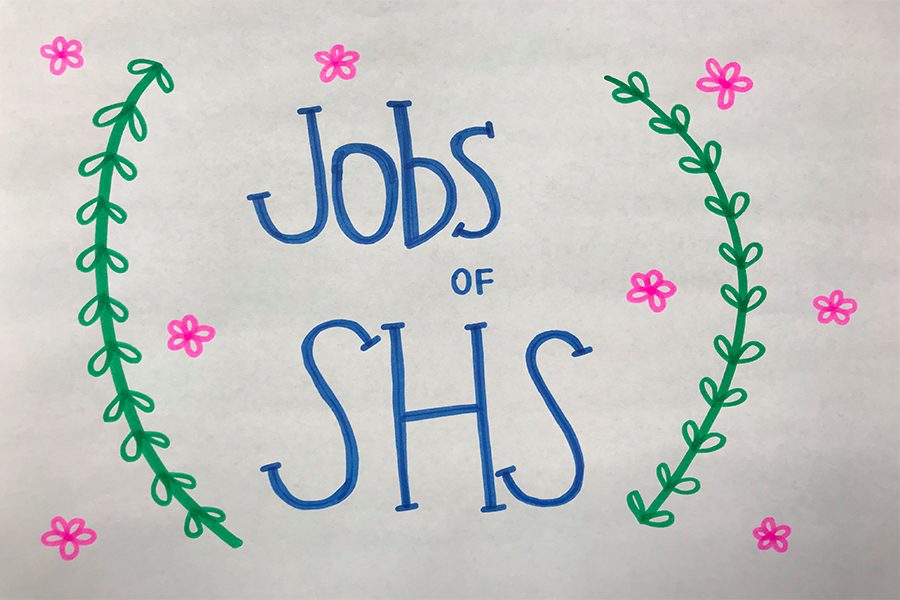 Jobs
OF
SHS